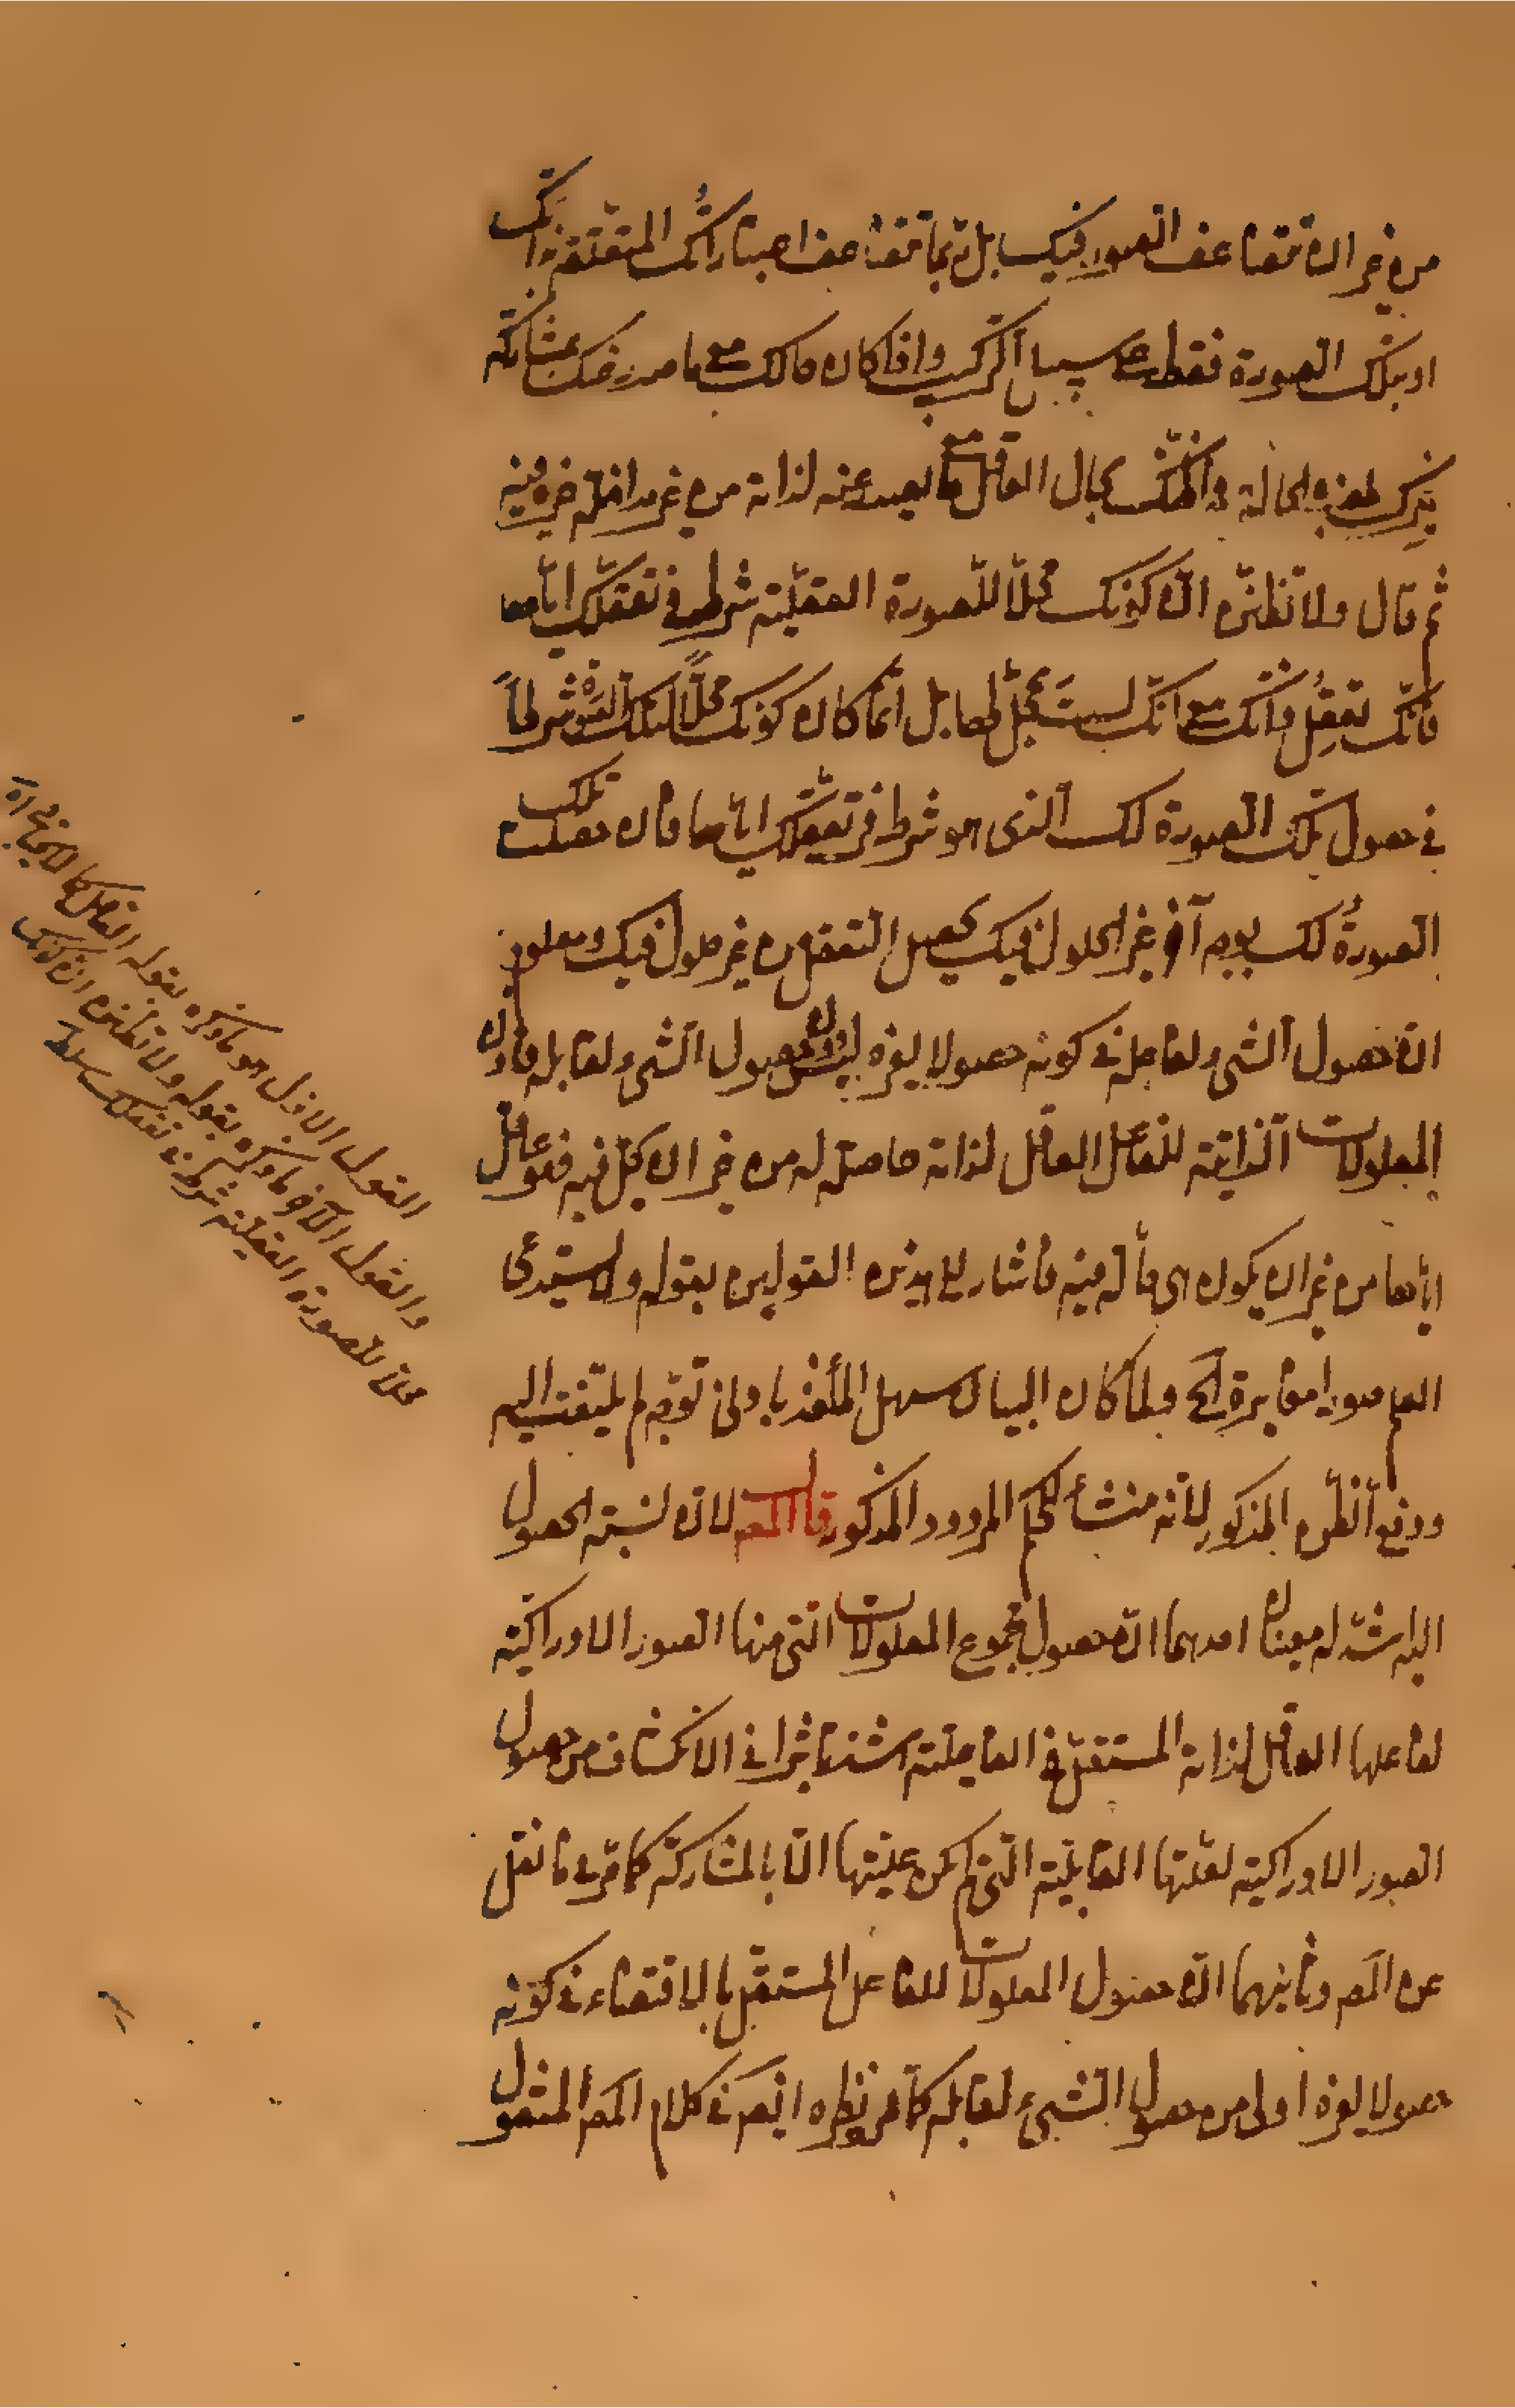 من غير ان تتضاعف الصور فيك بل ربما تتضاعف اعتباراتك المتعلقة بذاتك
او بتلك الصورة فقط على سبيل التركيب واذا كان حالك مع ما صدر عنك بمشاركة
غيرك هذه الحالة فما ظنك بحال العاقل مع ما يصدر عنه لذاته من غير مداخلة غيره فيه
ثم قال ولا تظنن ان كونك محلا للصورة العقلية شرط في تعقلك اياها
فانك تعقل ذاتك مع انك لست بمحل لها بل انما كان كونك محلا لتلك الصورة شرطاً
في حصول تلك الصورة لك الذي هو شرط في تعقلك اياها فان حصلت تلك
الصورة لك بوجه آخر غير الحلول فيك يحصل التعقل من غير حلول فيك ومعلوم
ان حصول الشيء لفاعله في كونه حصولا لغيره ليس دون حصول الشيء لقابله فاذن
المعلولات الذاتية للفاعل العاقل لذاته حاصلة له من غير ان يحل فيه فهو عاقل
اياها من غير ان يكون هي حالة فيه فاشار الى هذين القولين بقوله ولا يستدعي
العلم صورا مغايرة الخ ولما كان البيان سهل المأخذ بادنى توجه لم يلتفت اليه
ودفع الظن المذكور لانه منشأ للحكم المردود المذكور قال المصـ لان نسبة الحصول
اليه اشد له معنيان احدهما ان حصول مجموع المعلولات التي منها الصور الادراكية
لفاعلها العاقل لذاته المستقل في الفاعلية اشد تاثيرا في الانكشاف من حصول
الصور الادراكية لعلتها القابلية التي لم يكن عليتها الا بالمشاركة كما مر في ما نقل
عن المصـ وثانيهما ان حصول المعلولات للفاعل المستقل بالاقتضاء في كونه
حصولا لغيره اولى من حصول الشيء لقابله كما مر نظيره ايضـ في كلام المصـ المنقول
القول الاول هو ما ذكره بقوله العاقل كما لا يحتاج اه
والقول الآخر ما ذكره بقوله ولا تظنن ان كونك
محلا للصورة العقلية شرط في تعقلك